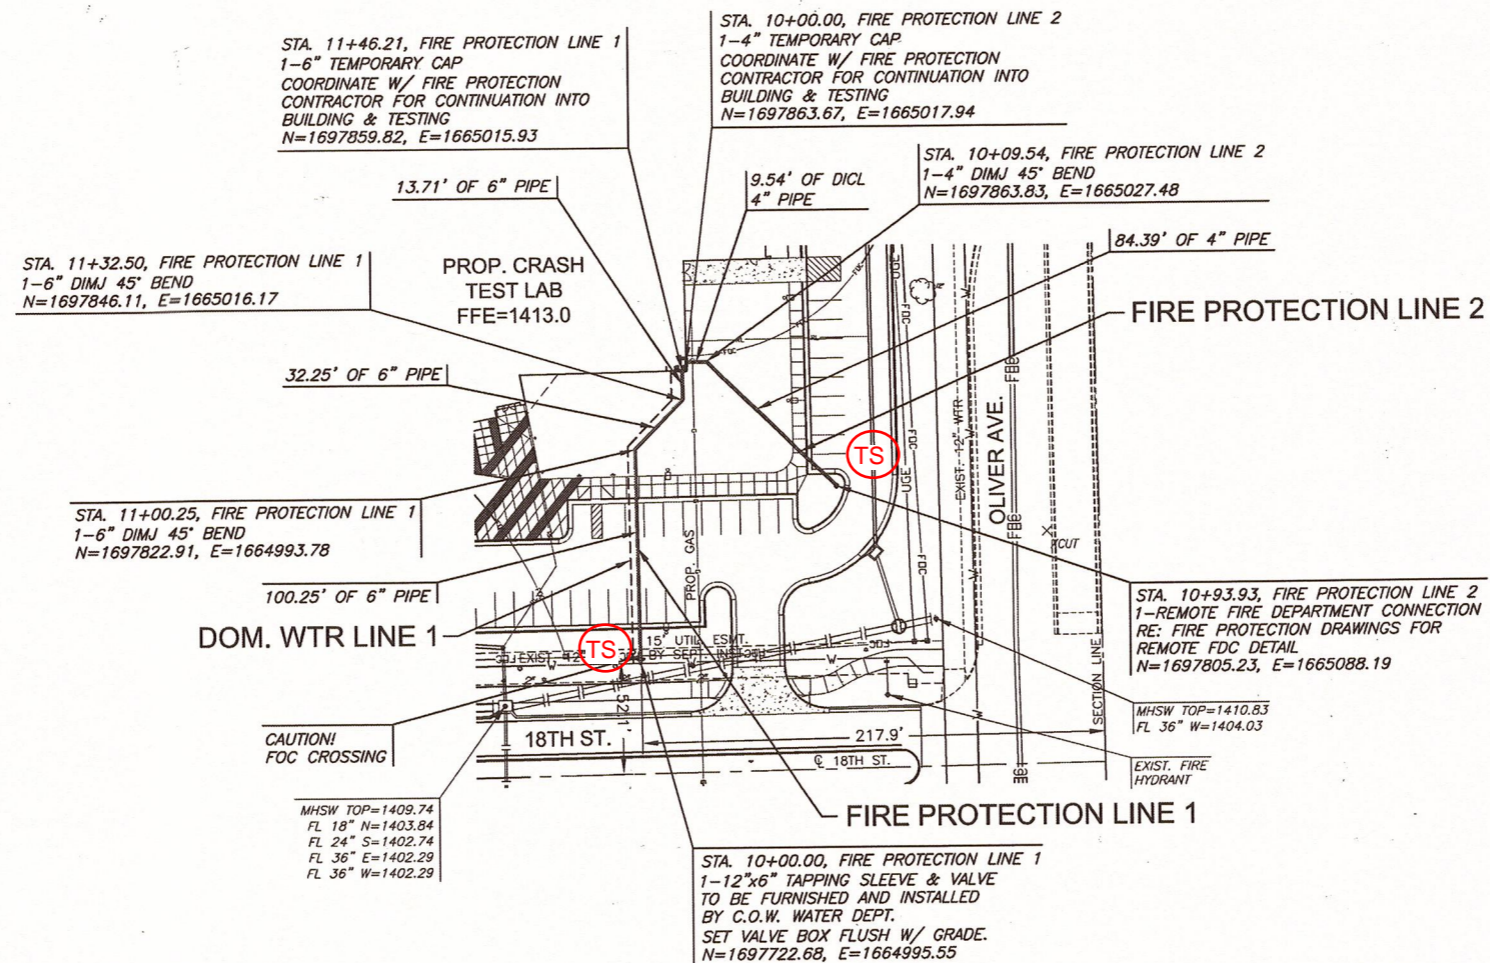 STA. 11+46.21, FIRE PROTECTION LINE 1
1-6" TEMPORARY CAP
COORDINATE W/ FIRE PROTECTION
CONTRACTOR FOR CONTINUATION INTO
BUILDING & TESTING
N=1697859.82, E=1665015.93
STA. 10+00.00, FIRE PROTECTION LINE 2
1-4" TEMPORARY CAP
COORDINATE W/ FIRE PROTECTION
CONTRACTOR FOR CONTINUATION INTO
BUILDING & TESTING
N=1697863.67, E=1665017.94
13.71' OF 6" PIPE
9.54' OF DICL
4" PIPE
STA. 10+09.54, FIRE PROTECTION LINE 2
1-4" DIMJ 45° BEND
N=1697863.83, E=1665027.48
84.39' OF 4" PIPE
STA. 11+32.50, FIRE PROTECTION LINE 1
1-6" DIMJ 45° BEND
N=1697846.11, E=1665016.17
PROP. CRASH
TEST LAB
FFE=1413.0
FIRE PROTECTION LINE 2
32.25' OF 6" PIPE
TS
FDC
FDC
UGE
EXIST. 12" WTR
OLIVER AVE.
FBE
FBE
STA. 11+00.25, FIRE PROTECTION LINE 1
1-6" DIMJ 45° BEND
N=1697822.91, E=1664993.78
PROP. GAS
100.25' OF 6" PIPE
DOM. WTR LINE 1
TS
15' UTIL ESMT.
BY SEPT. INST.
EXIST. 12"
W
52.1'
STA. 10+93.93, FIRE PROTECTION LINE 2
1-REMOTE FIRE DEPARTMENT CONNECTION
RE: FIRE PROTECTION DRAWINGS FOR
REMOTE FDC DETAIL
N=1697805.23, E=1665088.19
SECTION LINE
MHSW TOP=1410.83
FL 36" W=1404.03
CAUTION!
FOC CROSSING
18TH ST.
217.9'
℄ 18TH ST.
EXIST. FIRE
HYDRANT
MHSW TOP=1409.74
FL 18" N=1403.84
FL 24" S=1402.74
FL 36" E=1402.29
FL 36" W=1402.29
FIRE PROTECTION LINE 1
STA. 10+00.00, FIRE PROTECTION LINE 1
1-12"x6" TAPPING SLEEVE & VALVE
TO BE FURNISHED AND INSTALLED
BY C.O.W. WATER DEPT.
SET VALVE BOX FLUSH W/ GRADE.
N=1697722.68, E=1664995.55